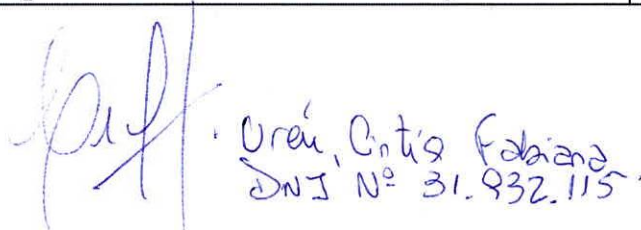 Ureú, Cintia Fabiana
DNI Nº 31.932.115.